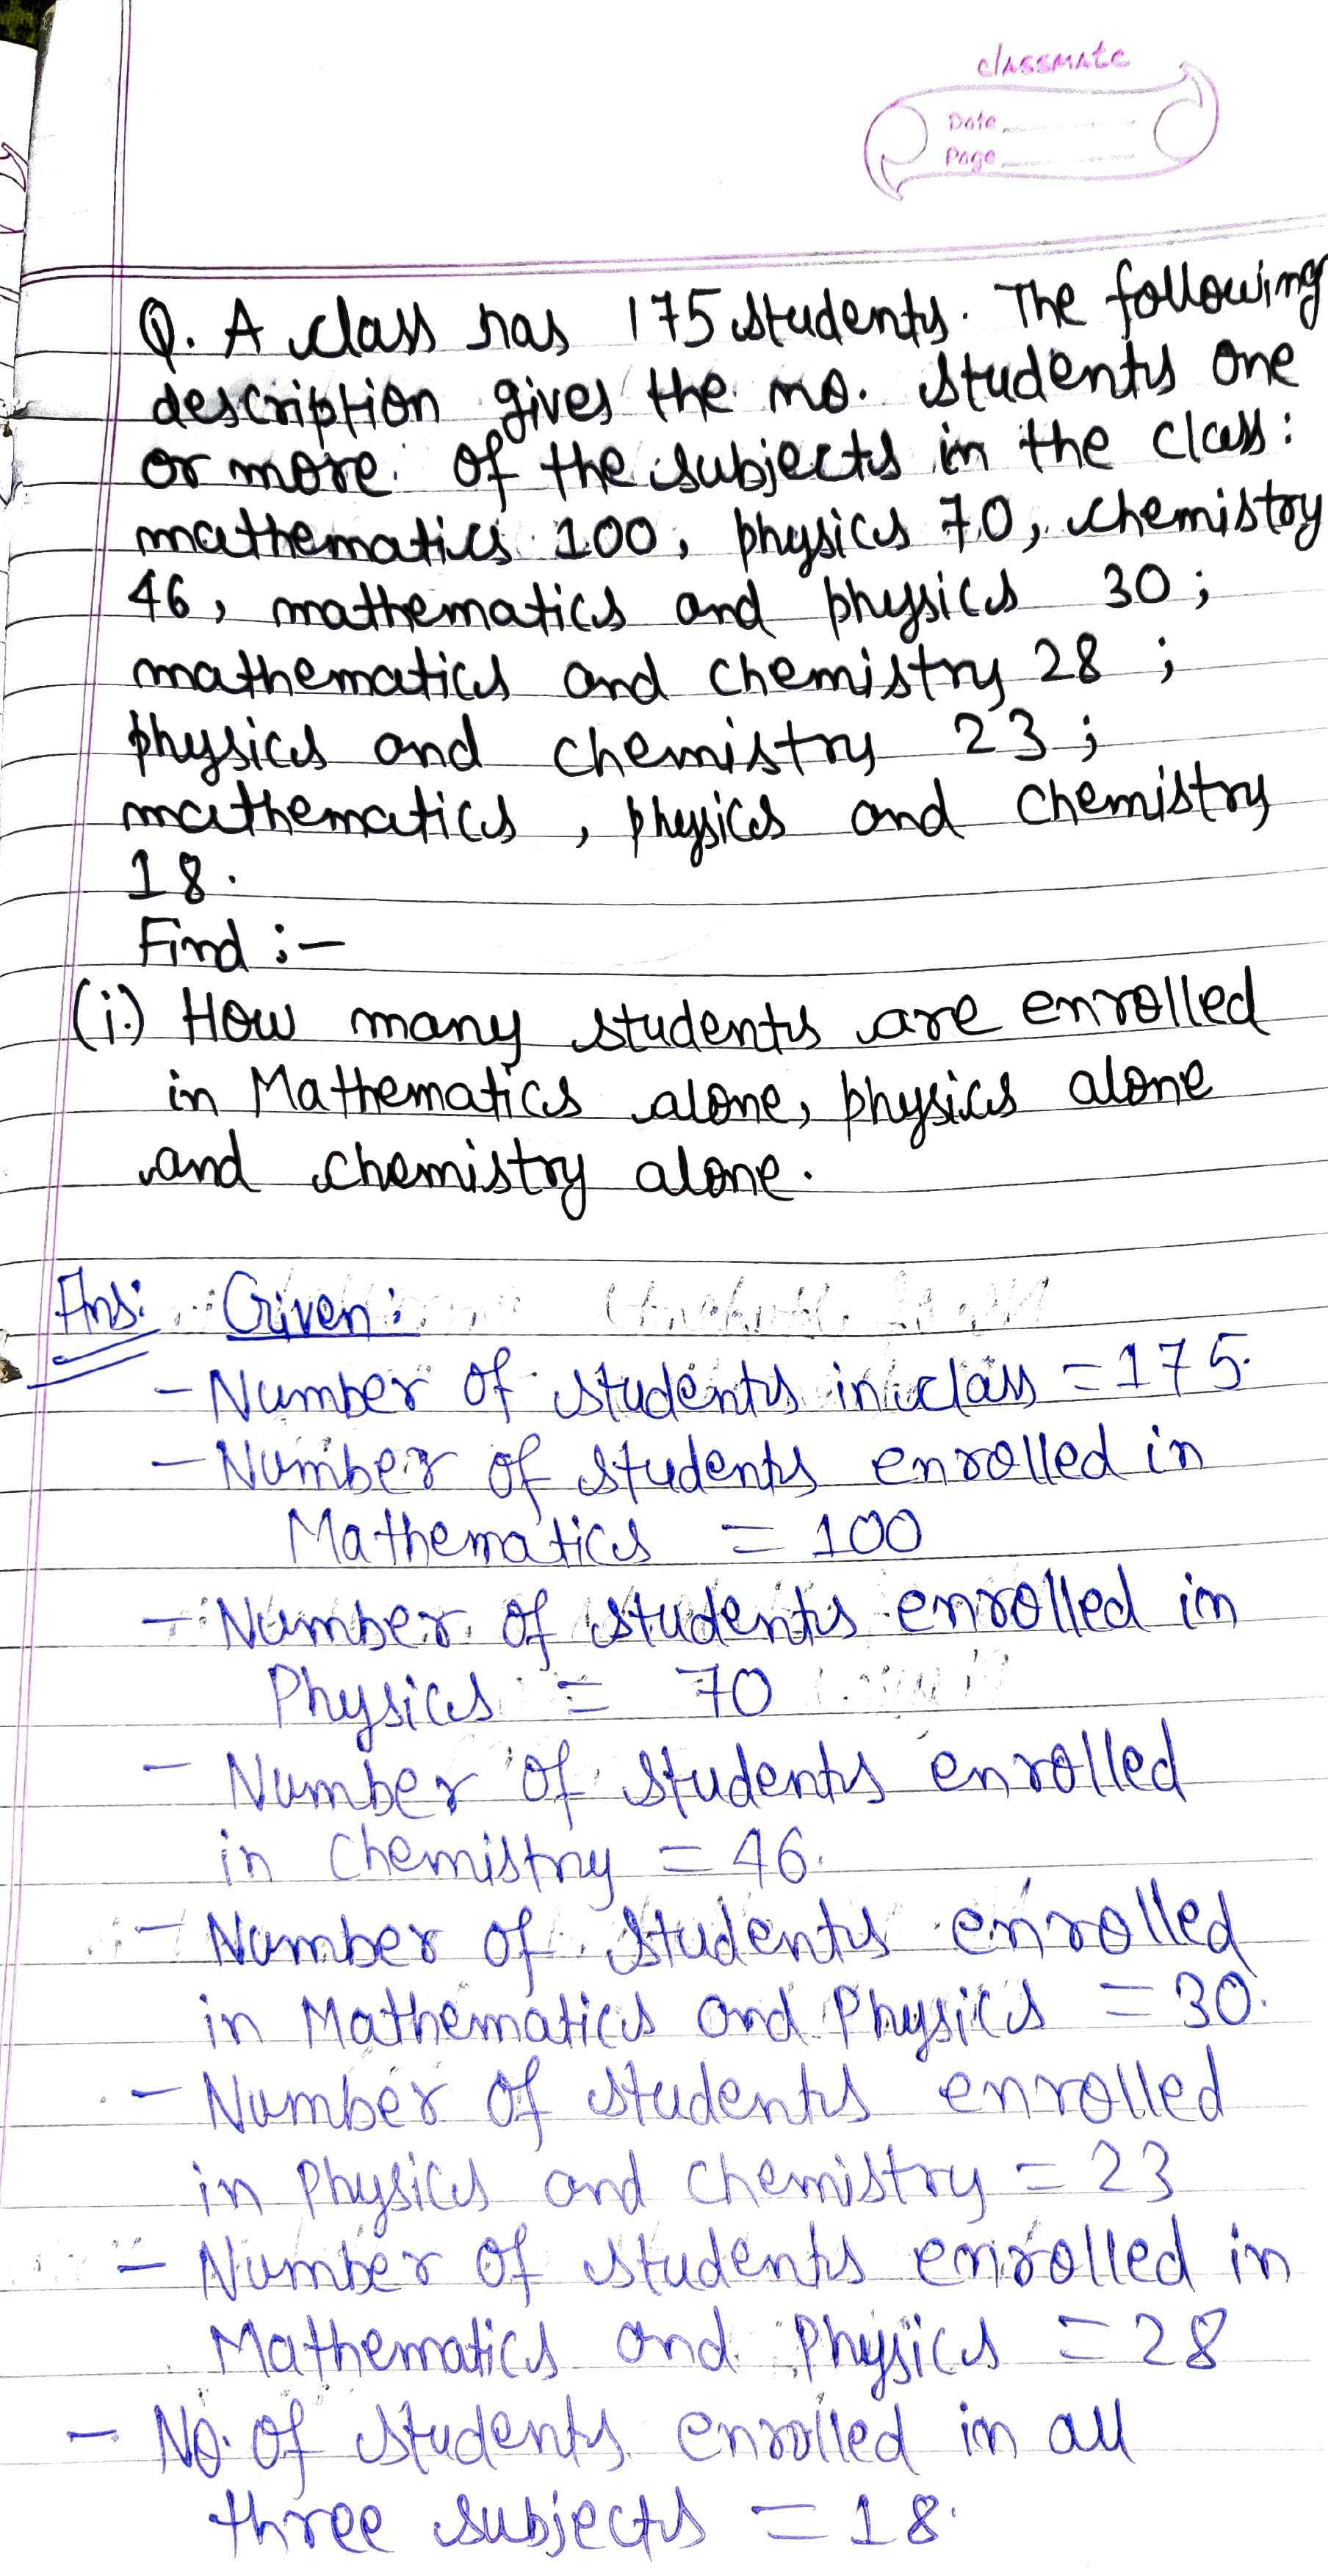 classmate
Date
Page
Q. A class has 175 students. The following
description gives the no. students one
or more of the subjects in the class:
mathematics 100, physics 70, chemistry
46, mathematics and physics 30;
mathematics and chemistry 28;
physics and chemistry 23;
mathematics, physics and chemistry
18.
Find :-
(i.) How many students are enrolled
in Mathematics alone, physics alone
and chemistry alone.
Ans: Given:
- Number of students in class = 175.
- Number of students enrolled in
Mathematics = 100
- Number of students enrolled in
Physics = 70
- Number of students enrolled
in chemistry = 46.
- Number of students enrolled
in Mathematics and Physics = 30.
- Number of students enrolled
in Physics and chemistry = 23
- Number of students enrolled in
Mathematics and Physics = 28
- No. of students enrolled in all
three subjects = 18.